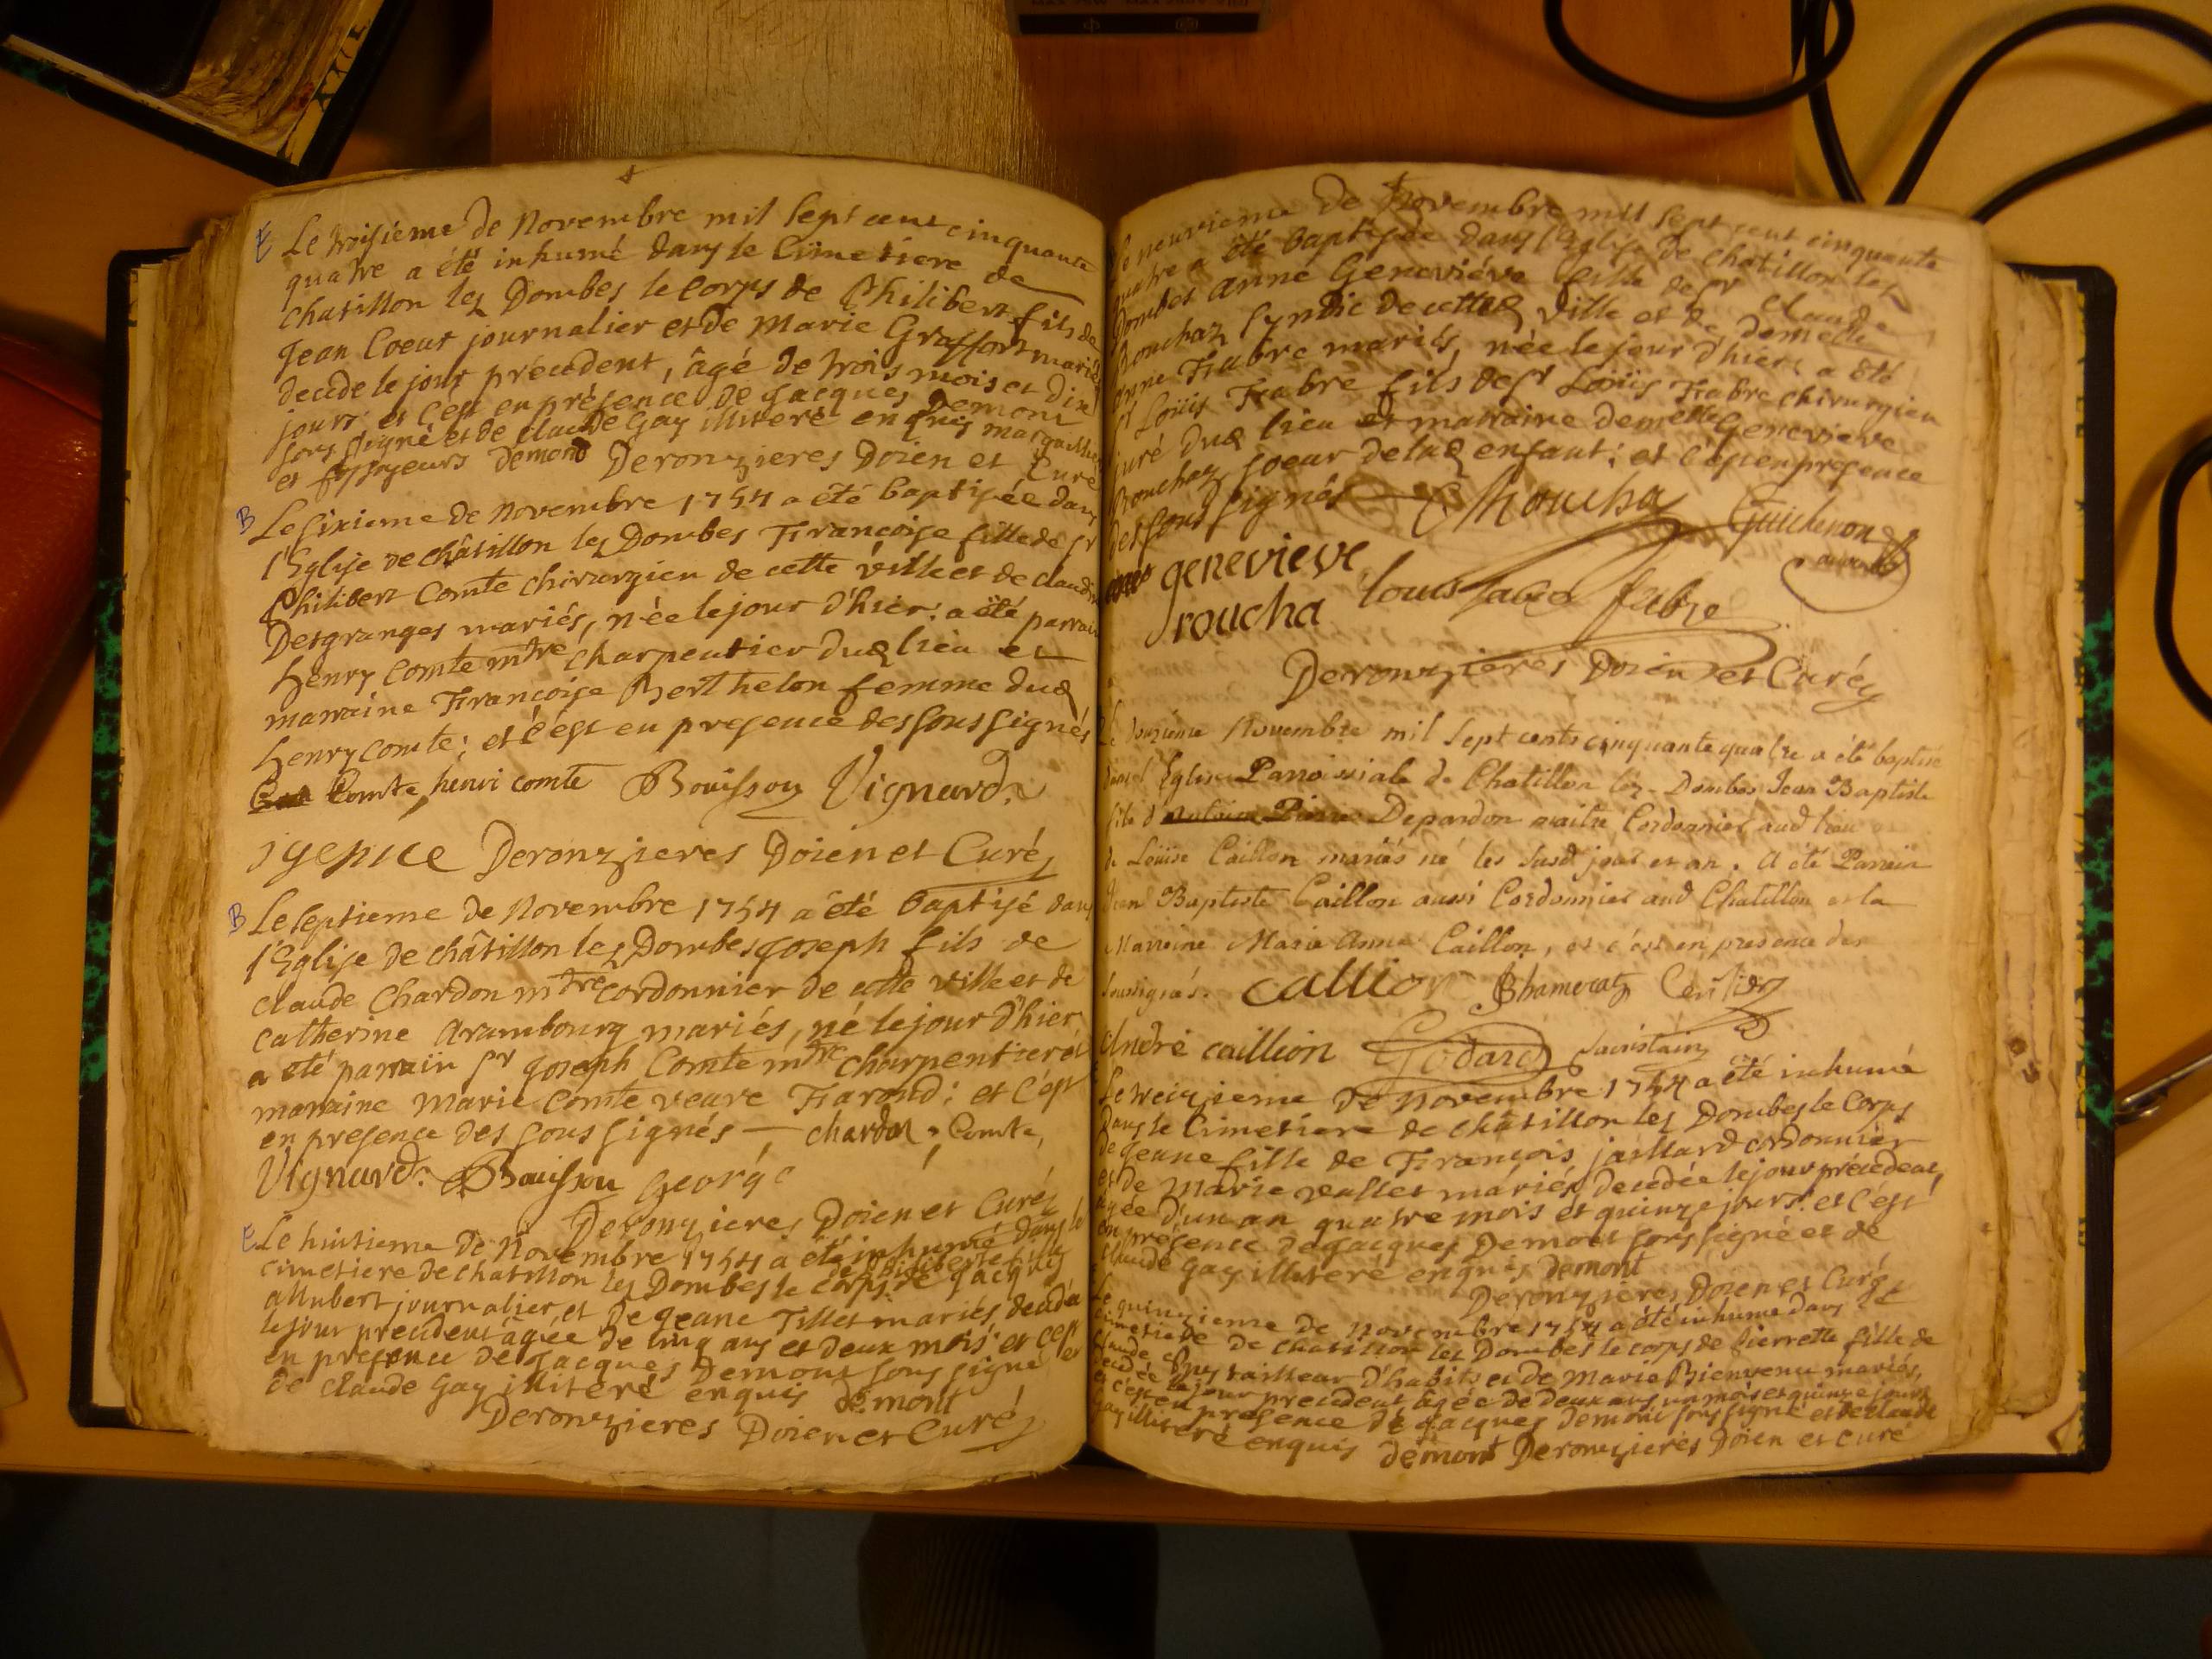 E Le troisieme de Novembre mil sept cent cinquante
quatre a été inhumé dans le Cimetiere de
chatillon les Dombes le corps de Philibert fils de
Jean Coeur journalier et de Marie Graffort mariés
decede le jour précédent, âgé de trois mois et dix
jours; et c'est en présence de Jacques Demont
sous signé et de claude Gay illiteré enquis
et fossoyeurs demont Deronzieres Doien et Curé
B Le sixieme de Novembre 1754 a été baptisée dans
l'Eglise de châtillon les Dombes Françoise fille de sr
Philibert Comte chirurgien de cette ville et de claudine
Desgranges mariés, née le jour d'hier: a été parrain
henry Comte mtre charpentier dud lieu et
marraine Françoise Berthelon femme dud
henry comte; et c'est en presence des sous signés
Comte, henri comte Bouisson Vignard
Deronzieres Doien et Curé
B Le septieme de Novembre 1754 a été baptisé dans
l'Eglise de châtillon les Dombes Joseph fils de
claude Chardon mtre cordonnier de cette ville et de
catherine Arambourg mariés, né le jour d'hier
a été parrain sr Joseph Comte mtre charpentier et
marraine Marie Comte veuve Farond; et c'est
en presence des sous signés — chardon, Comte,
Vignard. Bouisson George
Deronzieres Doien et Curé
E Le huitieme de Novembre 1754 a été inhumé dans le
cimetiere de chatillon les Dombes le corps de Philiberte fille de Jacques
allubert journalier et de Jeane Tillet mariés, decedée
le jour precedent âgée de cinq ans et deux mois: et c'est
en presence de Jacques Demont sous signé et
de claude Gay illiteré enquis demont
Deronzieres Doien et Curé
Le neuvieme de Novembre mil sept cent cinquante
quatre a été baptisée dans l'Eglise de chatillon les
Dombes Anne Geneviéve fille de sr claude
Rouchaz syndic de cetted ville et de demelle
Anne Fabre mariés, née le jour d'hier: a été
sr Loüis Fabre fils de sr Loüis Fabre chirurgien
juré dud lieu et marraine demelle Genevieve
Rouchaz soeur de lad enfant; et c'est en presence
des sous signés — Guichenon
genevieve louis fabre fabre
roucha
Deronzieres Doien et Curé
Le douzieme Novembre mil sept cents cinquante quatre a été baptisé
dans l'Eglise Parroissiale de Chatillon lez-Dombes Jean Baptiste
fils d Pierre Depardon maitre Cordonnier aud lieu
de Loüise Caillon mariés né les susd jour et an. A été Parrain
Jean Baptiste Caillon aussi Cordonnier aud Chatillon et la
Marraine Marie Anne Caillon, et c'est en presence des
soussignés. callion
André caillion Godard
Le treizieme de Novembre 1754 a été inhumé
Dans le Cimetiere de châtillon les Dombes le Corps
de Jeane fille de François jaillard cordonnier
et de Marie vallet mariés, decedée le jour précedent,
âgée d'un an quatre mois et quinze jours: et c'est
en presence de Jacques Demont sous signé et de
claude Gay illiteré enquis demont
Deronzieres Doien et Curé
Le quinzieme de Novembre 1754 a été inhumé dans le
cimetiere de chatillon les Dombes le corps de Pierrette fille de
claude tailleur d'habits et de Marie Bienvenu mariés,
decedée le jour precedent, âgée de deux ans, un mois et quinze jours
et c'est en presence de Jacques Demont sous signé et de claude
Gay illiteré enquis demont Deronzieres Doien et curé